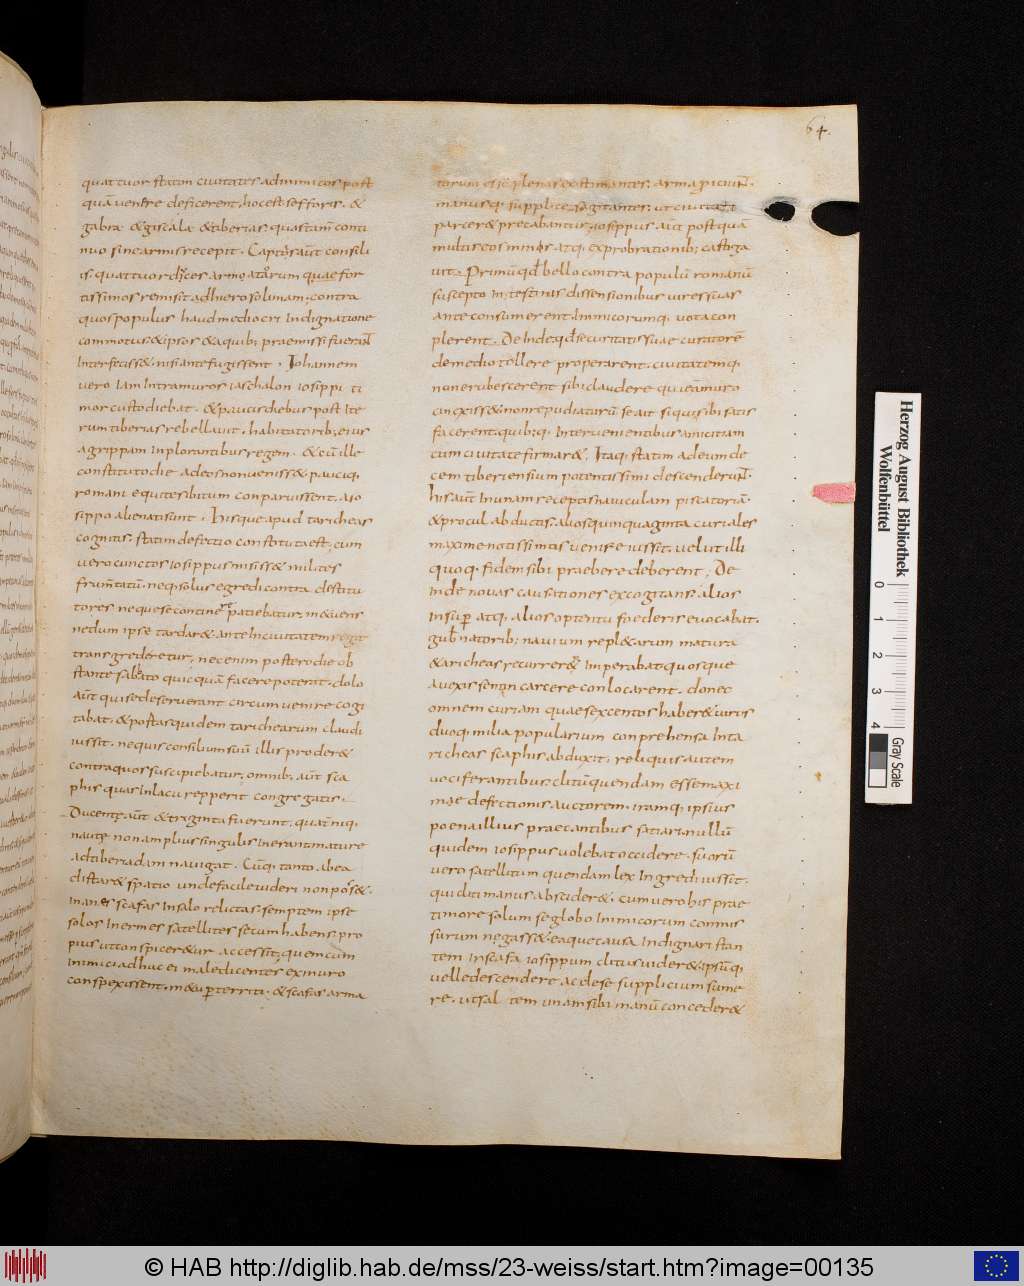 64.
quattuor statim civitates ad inimicos post
quā venire deficerent, hocest sefforis. &
gabra & giscala & tiberias. quas tam̄ conti
nuo sine armis recepit. Captis aūt consili
is quattuor duces armatorum quae for
tissimos remisit ad hierosolimam, contra
quos populus haud mediocri indignatione
commotus, & ipsos & a quib; praemissi fuer
interfeciss& nisi ante fugissent. Iohannem
vero iam intra muros iaschalon iosippi ti
mor custodiebat. & paucis diebus post ite
rum tiberias rebellavit. habitatorib; eius
agrippam inplorantibus regem. & cū ille
constituto die ad eos non veniss& pauciq,
romani equites ibitum conparuissent, aio
sippo alienati sunt. hisque apud taricheas
cognitis, statim defectio constituta est, cum
vero cunctos iosippus misiss& milites
frum̄tatū, neq, solus egredi contra destitu
tores neque se continere patiebatur, m&uens
nedum ipse tardar& ante in civitatem regii
transgrederetur, nec enim postero die ob
stante sabbato quicquā facere poterat. dolo
aūt qui se deseruerant circumvenire cogi
tabat. & portas quidem tarichearum claudi
iussit. nequis consilium suū illis proder&
contra quos suscipiebatur, omnib; aūt sca
phis quas in lacu repperit congregatis.
Ducentę aūt & triginta fuerunt, quatniq,
nautę non amplius singulis inerant mature
ad tiberiadam navigat. Cūq, tanto abea
distar& spatio unde facile videri non poss&.
inanes scafas in salo relictas. septem ipse
solos inermes satellites secum habens, pro
pius ut conspicer&ur accessit, quem cum
inimici adhuc ei maledicentes ex muro
conspexissent. m&u perterriti. & scafas arma
torum esse plenas existimantes. arma piciunt.
manusq, supplices agitantes. ut civitati
parcer& precabantur, iosippus aūt postquā
multis eos minis atq, exprobrationib; castiga
vit. Primū qd bello contra populū romanū
suscepto intestinis dissensionibus vires suas
ante consumerent. inimicorumq, vota con
plerent. Deinde qd securitatis suae curatorē
de medio tollere properarent. civitatemq,
non erubescerent sibi claudere qui eā muro
cinxiss& non repudiaturū se ait siqui sibi satis
facerent. quib;q, intervenientibus amicitiam
cum civitate firmar&. Itaq, statim ad eum de
cem tiberiensium potentissimi descenderunt.
his aūt in unam receptis naviculam piscatoriā.
& procul abductis. alios quinquaginta curiales
maxime notissimos venire iussit. velut illi
quoq, fidem sibi praebere deberent, De
inde novas causationes excogitans alios
insup atq, alios optentu foederis evocabat.
gub̄natorib; navium repl&arum matura
& aricheas recurrer& imperabat, quosque
avexissenōn carcere conlocarent. donec
omnem curiam quae sexcentos haber& viris
duoq, milia popularium comprehensa inta
richeas scaphis abduxit. reliquis autem
vociferantibus clitū quendam esse maxi
mae defectionis auctorem. iramq, ipsius
poena illius praecantibus satiari, nullū
quidem iosippus volebat occidere. suorū
vero satellitum quendam lex ingredi iussit.
qui cliti manus abscider&. cum vero his prae
timore solum se globo inimicorum commis
surum negass&. eaque causa indignari stan
tem in scafa iosippum clitus vider& ipsūq,
velle descendere ac de se supplicium sume
re. ut saltem unam sibi manū conceder&
Herzog August Bibliothek
Wolfenbüttel
0 1 2 3 4
Gray Scale
© HAB http://diglib.hab.de/mss/23-weiss/start.htm?image=00135